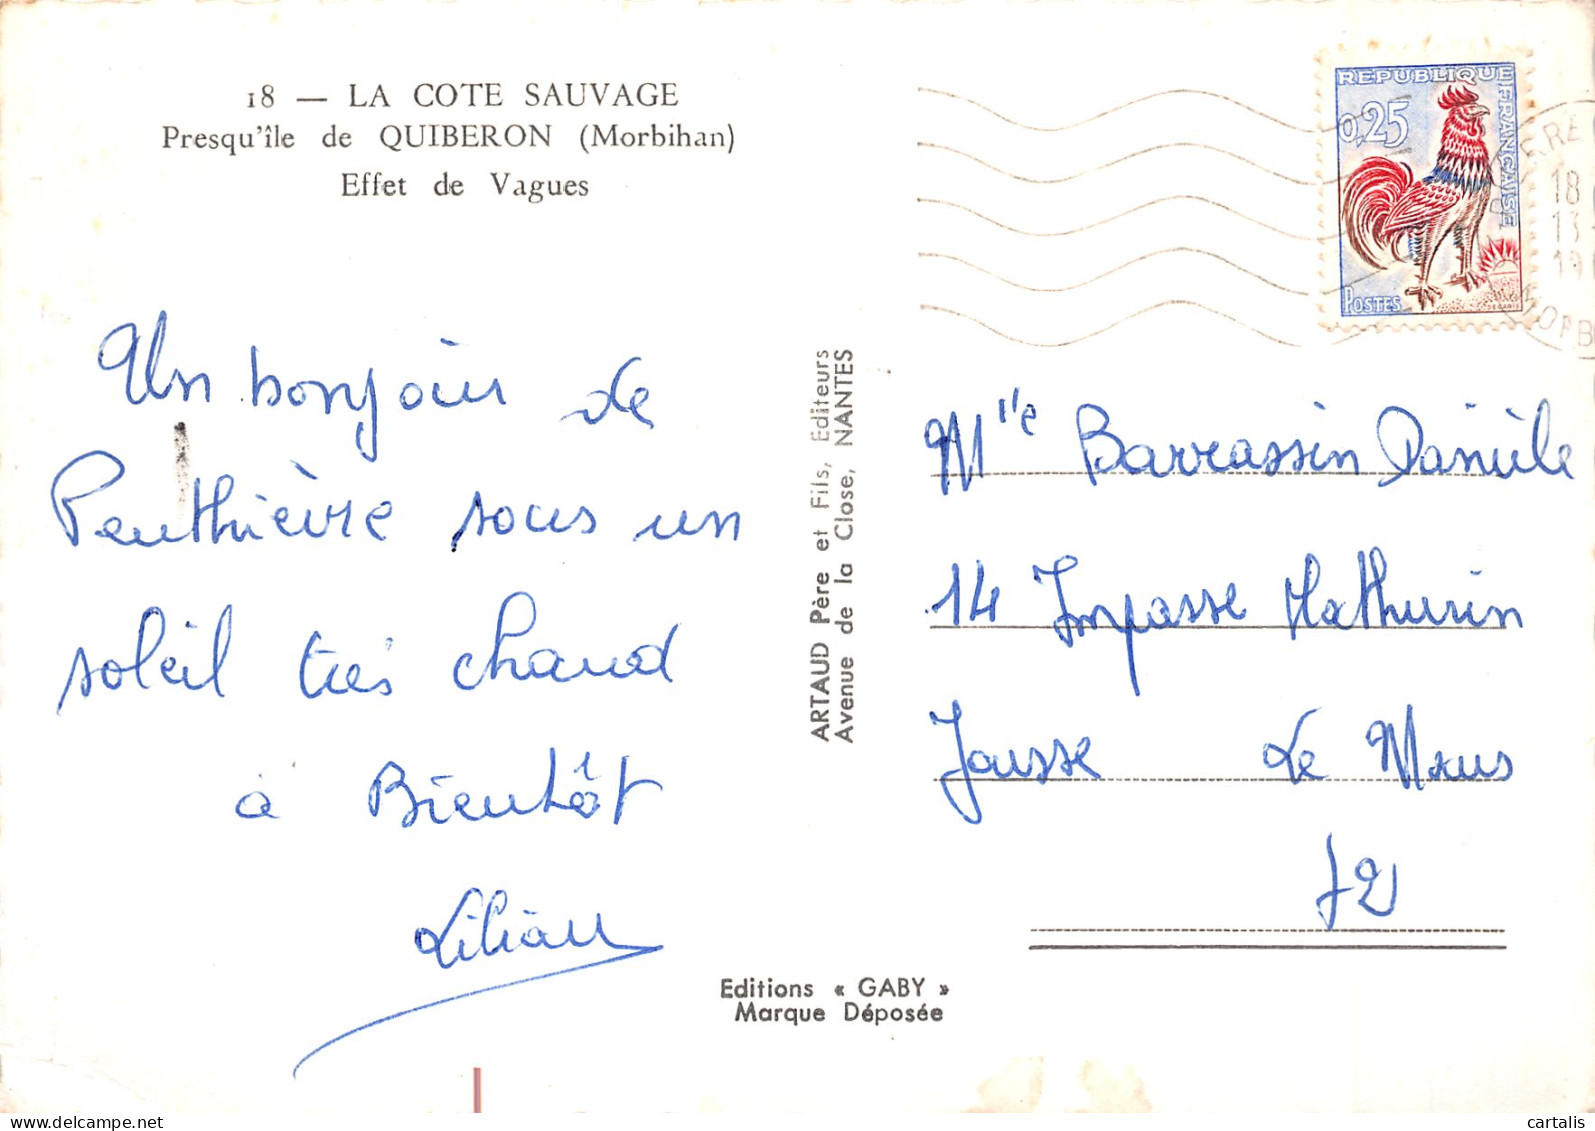 18 — LA COTE SAUVAGE
Presqu'île de QUIBERON (Morbihan)
Effet de Vagues
Un bonjour de
Penthièvre sous un
soleil très chaud
à Bientôt
Lilian
ARTAUD Père et Fils, Editeurs
Avenue de la Close, NANTES
Editions « GABY »
Marque Déposée
REPUBLIQUE FRANÇAISE
0,25
POSTES
18
13
MORB
Mlle Barrassin Danièle
14 Impasse Mathurin
Jousse Le Mans
72
cartalis